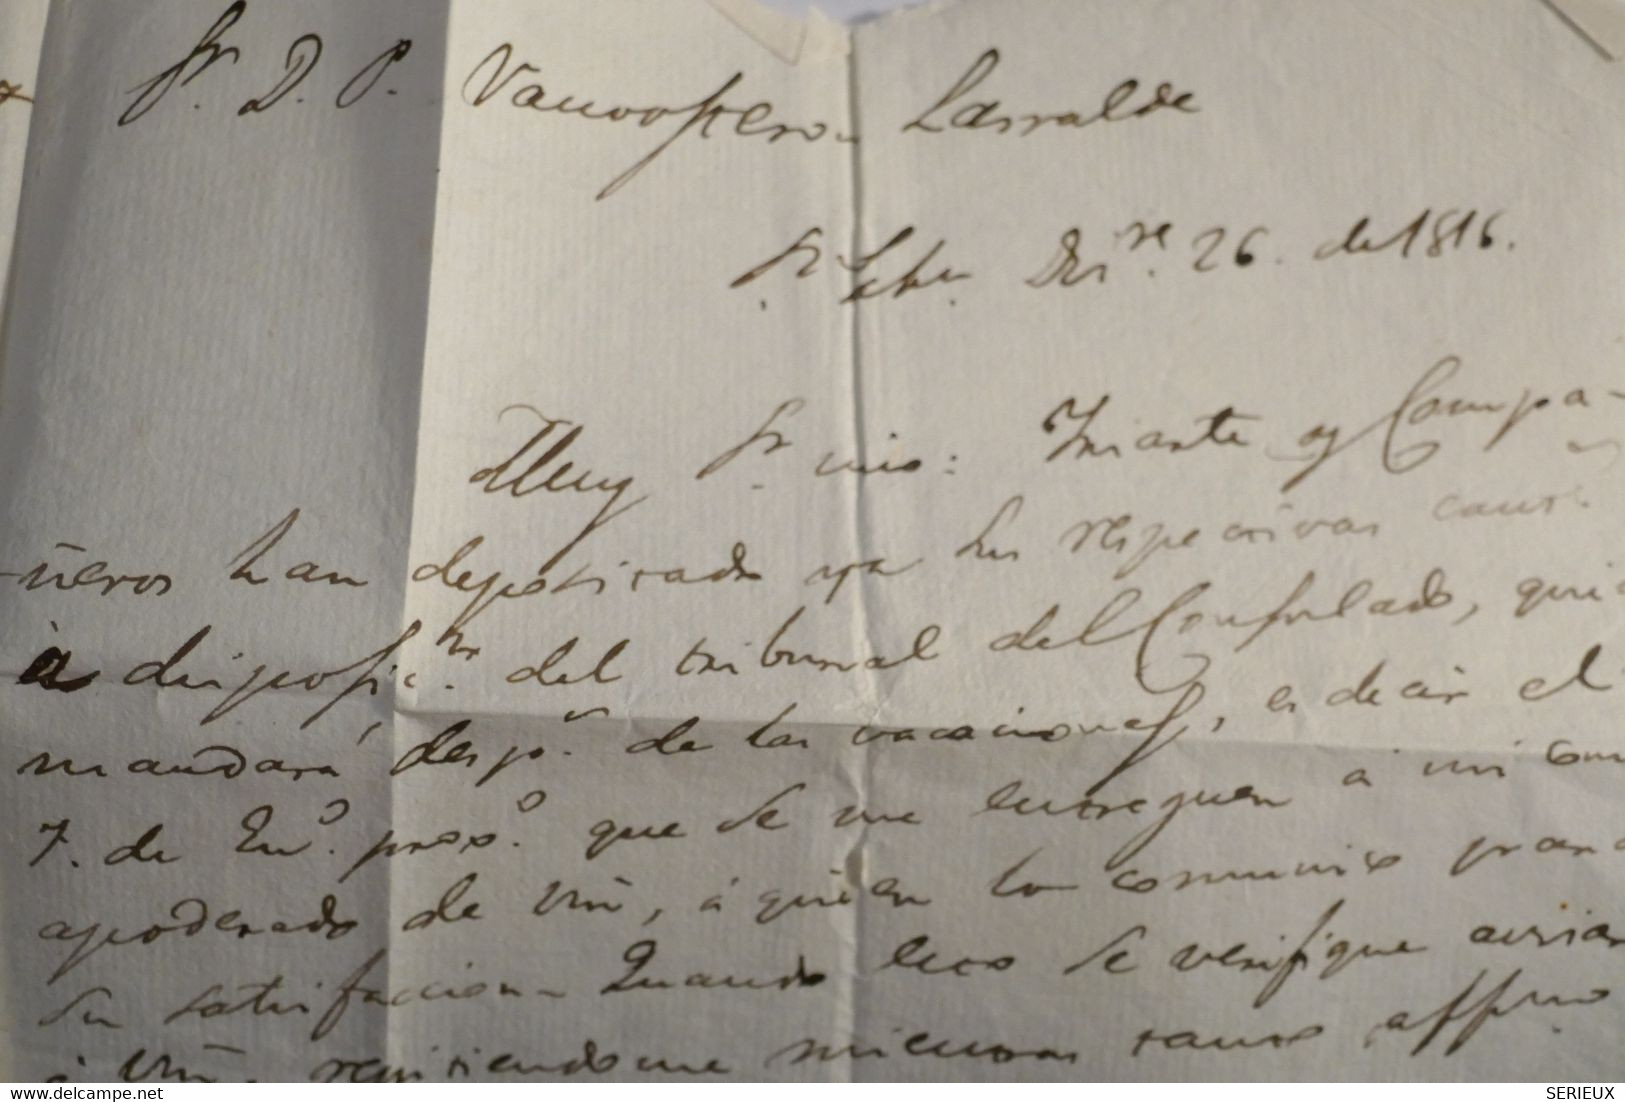 Sr. D. P. Vanoosten. Larralde
Sn. Seben. Dizre. 26. de 1816.
Muy Sr. mio: Iriarte y Compa-
ñeros han depositado ya sus respectivas cant.
á disposicn. del tribunal del Consulado, quien
mandará, desps. de las vacaciones, es decir el
7. de Eno. proxo. que se me entreguen á mi como
apoderado de Vm, á quien lo comunico para
su satisfaccion. Quando eso se verifique avisaré
á Vm, repitiendome mientras tanto affmo
delcampe.net
SERIEUX